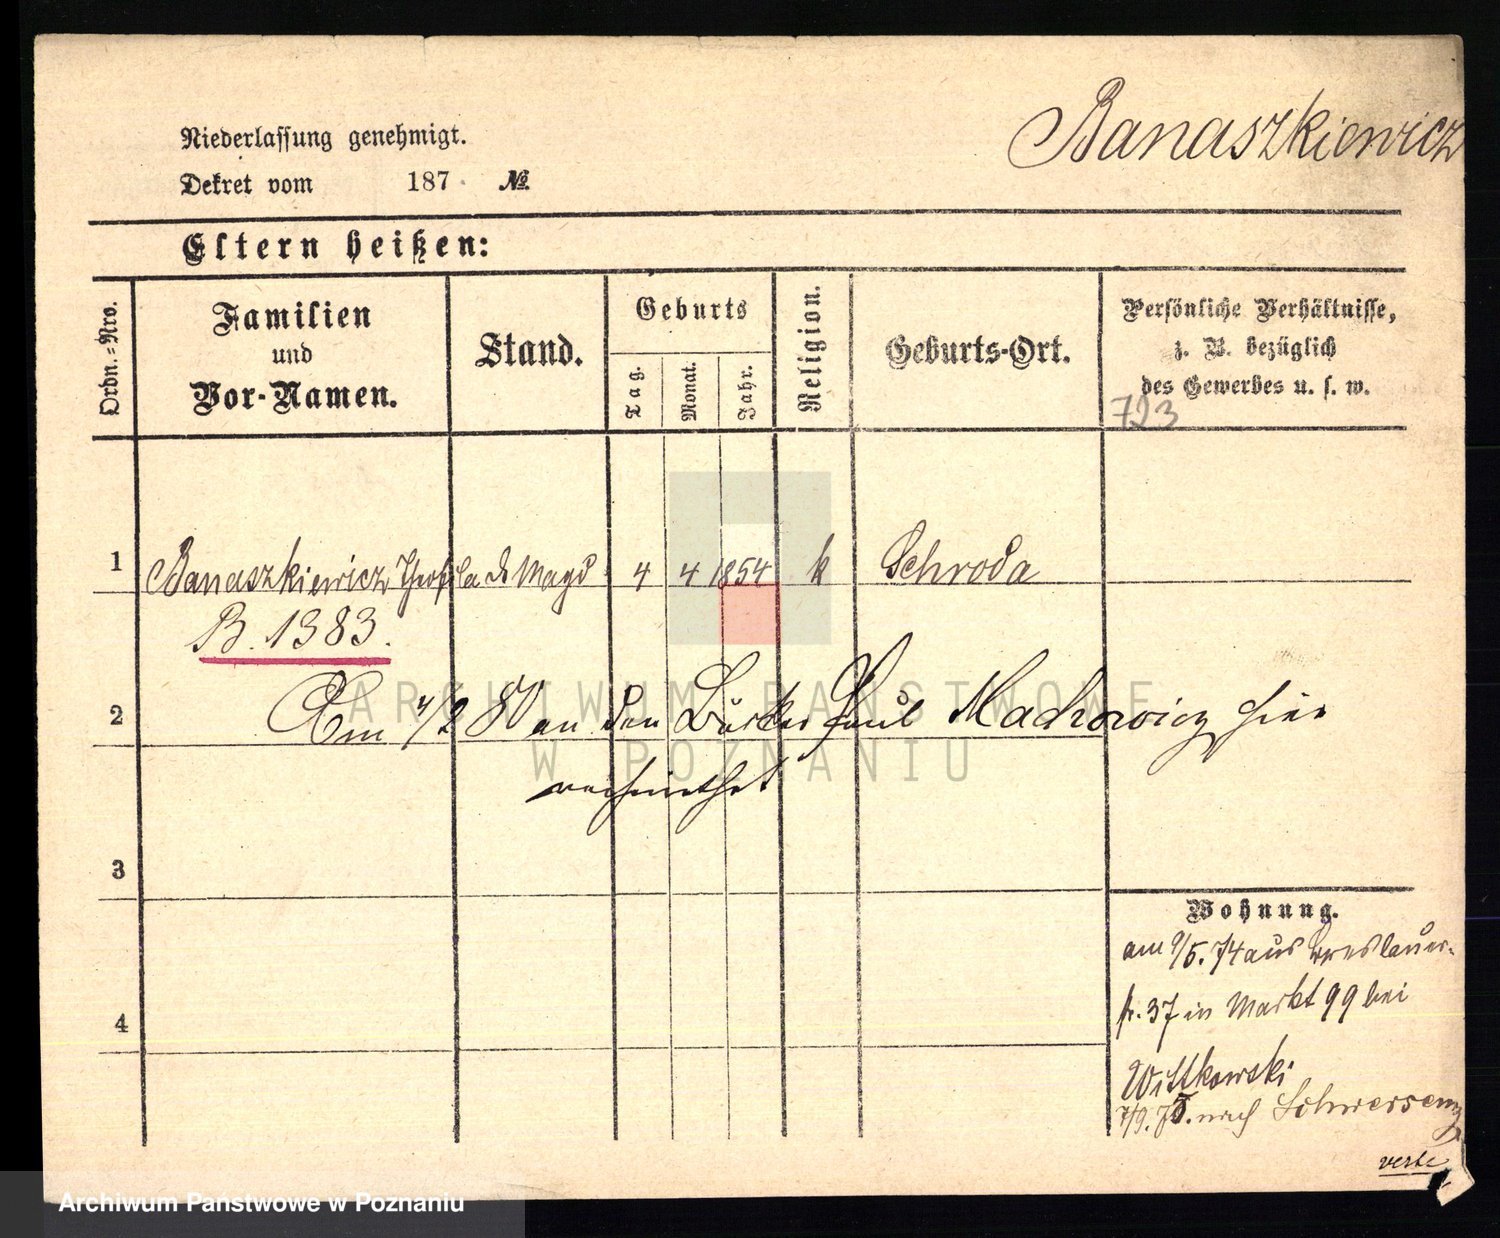 Banaszkiewicz
Niederlassung genehmigt.
Dekret vom 187 . №
Eltern heißen:
Ordn.=Nro.
Familien
und
Vor-Namen.
Stand.
Geburts
Tag.
Monat.
Jahr.
Religion.
Geburts-Ort.
Persönliche Verhältnisse,
z. B. bezüglich
des Gewerbes u. s. w.
723
1 Banaszkiewicz Theofila d. Magd 4 4 1854 k Schroda
B. 1383.
2 Am 4/2 80 an den Bäcker Paul Machowicz hier
verheirathet
3
4
Wohnung.
am 9/5. 74 aus Breslauer-
str. 37 in Markt 99 bei
Wittkowski
7/9. 75. nach Schwersenz
verte
ARCHIWUM PAŃSTWOWE
W POZNANIU
Archiwum Państwowe w Poznaniu